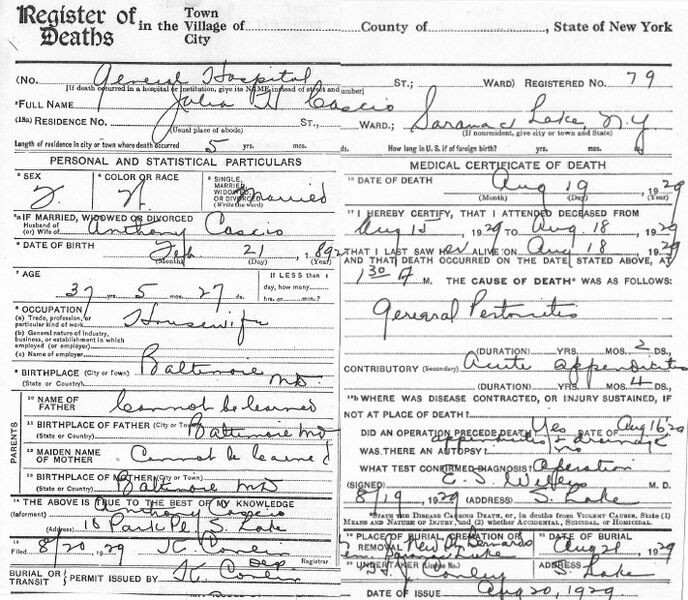 Register of Deaths in the Town Village of City County of , State of New York
(No. General Hospital St.; Ward) Registered No. 79
[If death occurred in a hospital or institution, give its NAME instead of street and number]
² FULL NAME Julia Cascio
(18a) RESIDENCE No. ST., WARD; Saranac Lake, N.Y.
(Usual place of abode) (If nonresident, give city or town and State)
Length of residence in city or town where death occurred 5 yrs. mos. ds. How long in U.S. if of foreign birth? yrs. mos. ds.
PERSONAL AND STATISTICAL PARTICULARS
³ SEX F.
⁴ COLOR OR RACE W
⁵ SINGLE, MARRIED, WIDOWED, OR DIVORCED (Write the word) Married
5a IF MARRIED, WIDOWED OR DIVORCED
Husband of (or) Wife of Anthony Cascio
⁶ DATE OF BIRTH Feb. 21, 1892
(Month) (Day) (Year)
⁷ AGE 37 yrs. 5 mos. 27 ds.
If LESS than 1 day, how many hrs. or mos.?
⁸ OCCUPATION
(a) Trade, profession, or particular kind of work Housewife
(b) General nature of industry, business, or establishment in which employed (or employer)
(c) Name of employer
⁹ BIRTHPLACE (City or Town) Baltimore
(State or Country) Md.
PARENTS
¹⁰ NAME OF FATHER Cannot be learned
¹¹ BIRTHPLACE OF FATHER (City or Town)
(State or Country) Baltimore Md
¹² MAIDEN NAME OF MOTHER Cannot be learned
¹³ BIRTHPLACE OF MOTHER (City or Town)
(State or Country) Baltimore Md
¹⁴ THE ABOVE IS TRUE TO THE BEST OF MY KNOWLEDGE
(Informant) Anthony Cascio
(Address) 16 Park Pl. S. Lake
¹⁵ Filed 8/20, 1929 K. Conlin
Dep. Registrar
BURIAL OR TRANSIT PERMIT ISSUED BY K. Conlin
MEDICAL CERTIFICATE OF DEATH
¹⁶ DATE OF DEATH Aug 19, 1929
(Month) (Day) (Year)
¹⁷ I HEREBY CERTIFY, THAT I ATTENDED DECEASED FROM
Aug 15, 1929 TO Aug. 18, 1929
THAT I LAST SAW her ALIVE ON Aug 18, 1929
AND THAT DEATH OCCURRED ON THE DATE STATED ABOVE, AT
1 30 A M. THE CAUSE OF DEATH* WAS AS FOLLOWS:
General Peritonitis
(DURATION) YRS. MOS. 2 DS.
CONTRIBUTORY (Secondary) Acute appendicitis
(DURATION) YRS. MOS. 4 DS.
18b WHERE WAS DISEASE CONTRACTED, OR INJURY SUSTAINED, IF NOT AT PLACE OF DEATH?
DID AN OPERATION PRECEDE DEATH? Yes DATE OF Aug 16 '29
appendicitis & drainage
WAS THERE AN AUTOPSY? no
WHAT TEST CONFIRMED DIAGNOSIS? Operation
(SIGNED) E. S. M. D.
8/19, 1929 (ADDRESS) S. Lake
*STATE THE DISEASE CAUSING DEATH, or, in deaths from VIOLENT CAUSES, State (1) MEANS AND NATURE OF INJURY, and (2) whether ACCIDENTAL, SUICIDAL, or HOMICIDAL.
¹⁹ PLACE OF BURIAL, CREMATION OR REMOVAL New St. Bernards Cem. Saranac Lake
DATE OF BURIAL Aug 21, 1929
²⁰ UNDERTAKER (License No.) J. Conley
ADDRESS S. Lake
DATE OF ISSUE Aug 20, 1929